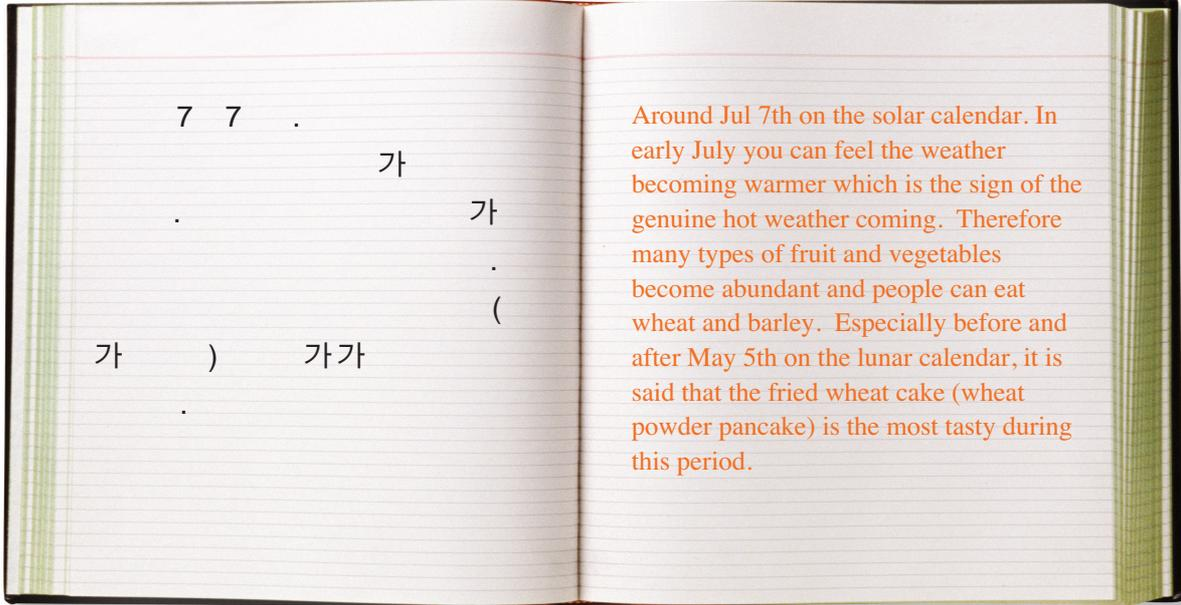 7 7 .
가
. 가
.
(
가 ) 가가
.
Around Jul 7th on the solar calendar. In
early July you can feel the weather
becoming warmer which is the sign of the
genuine hot weather coming. Therefore
many types of fruit and vegetables
become abundant and people can eat
wheat and barley. Especially before and
after May 5th on the lunar calendar, it is
said that the fried wheat cake (wheat
powder pancake) is the most tasty during
this period.